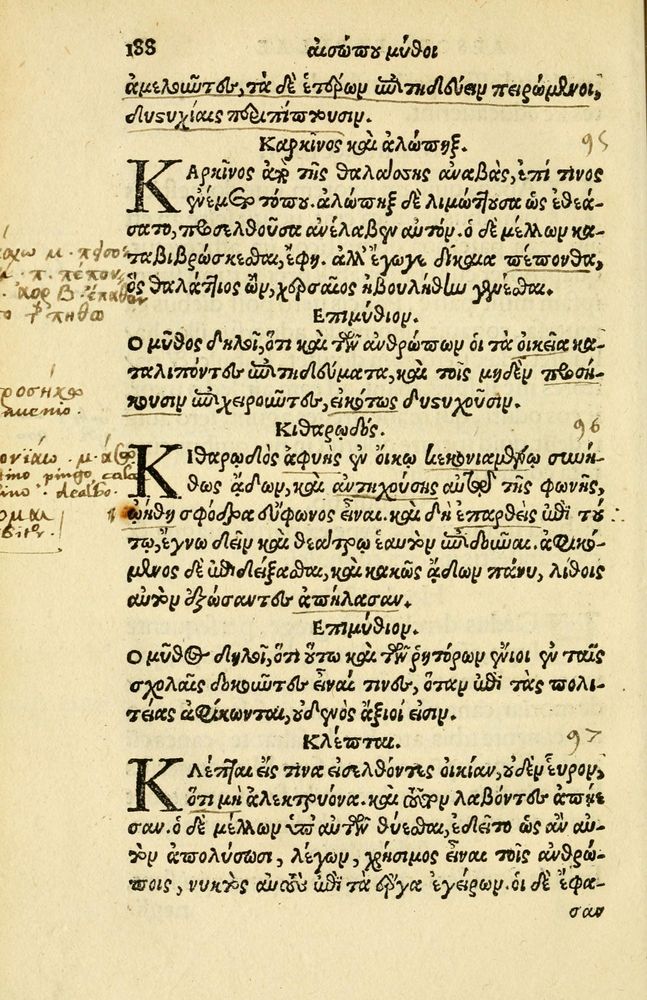 188 αισώπου μύθοι
ἀμελοῦντες, τὰ δὲ ἑτέρων ἐπιτηδεύειν πειρώμενοι,
δυςυχίαις περιπίπτουσιν.
Καρκῖνος καὶ ἀλώπηξ. 95
ΚΑρκῖνος ἀπὸ τῆς θαλάσσης ἀναβὰς, ἐπί τινος
ἐνέμετο τόπου. ἀλώπηξ δὲ λιμώττουσα ὡς ἐθεά-
σατο, προσελθοῦσα ἀνέλαβεν αυτόν. ὁ δὲ μέλλων κα-
ταβιβρώσκεσθαι, ἔφη. ἀλλ' ἔγωγε δίκαια πέπονθα,
ὃς θαλάττιος ὢν, χερσαῖος ἠβουλήθην γενέσθαι.
Επιμύθιον.
Ο μῦθος δηλοῖ, ὅτι καὶ τῶν ἀνθρώπων οἱ τὰ οἰκεῖα κα-
ταλιπόντες ἐπιτηδεύματα, καὶ τοῖς μηδὲν προσή-
κουσιν ἐπιχειροῦντες, εἰκότως δυςυχοῦσιν.
Κιθαρῳδός. 96
ΚΙθαρῳδὸς ἀφυὴς ἐν οἴκῳ κεκονιαμένῳ συνή-
θως ᾄδων, καὶ ἀντηχούσης αὐτῷ τῆς φωνῆς,
ᾠήθη σφόδρα εὔφωνος εἶναι. καὶ δὴ ἐπαρθεὶς ἐπὶ τού
τῳ, ἔγνω δεῖν καὶ θεάτρῳ ἑαυτὸν ἐπιδοῦναι. ἀφικό-
μενος δὲ ἐπιδείξασθαι, καὶ κακῶς ᾄδων πάνυ, λίθοις
αυτὸν ἐξώσαντες ἀπήλασαν.
Επιμύθιον.
Ο μῦθος δηλοῖ, ὅτι οὕτω καὶ τῶν ῥητόρων ἔνιοι ἐν ταῖς
σχολαῖς δοκοῦντες εἶναί τινες, ὅταν ἐπὶ τὰς πολι-
τείας ἀφίκωνται, οὐδενὸς ἄξιοί εἰσιν.
Κλέπται. 97
ΚΛέπται εἴς τινα εἰσελθόντες οἰκίαν, οὐδὲν εὗρον,
ὅτι μὴ ἀλεκτρυόνα. καὶ τοῦτον λαβόντες ἀπῄε
σαν. ὁ δὲ μέλλων ὑπ' αὐτῶν θύεσθαι, ἐδεῖτο ὡς ἂν αυ-
τὸν ἀπολύσωσι, λέγων, χρήσιμος εἶναι τοῖς ἀνθρώ-
ποις, νυκτὸς αυτοὺς ἐπὶ τὰ ἔργα ἐγείρων. οἱ δὲ ἔφα-
σαν